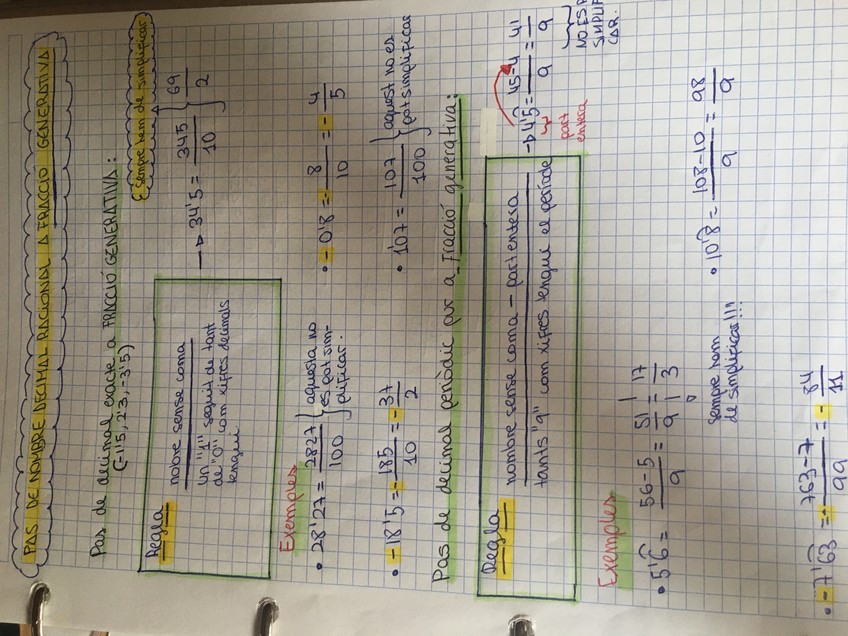 PAS DE NOMBRE DECIMAL RACIONAL A FRACCIÓ GENERATIVA
Pas de decimal exacte a FRACCIÓ GENERATIVA:
(-1'5, 2'3, -3'5)
sempre hem de simplificar
Regla
nobre sense coma
un "1" seguit de tant
de "0" com xifres decimals
tengui
→ 34'5 = 345/10 = 69/2
Exemples
• 28'27 = 2827/100 } aquesta no
es pot sim-
plificar.
• -0'8 = -8/10 = -4/5
• -18'5 = -185/10 = -37/2
• 1'07 = 107/100 } aquest no es
pot simplificar
Pas de decimal periòdic pur a Fracció generativa:
Regla
nombre sense coma - part entera
tants "9" com xifres tengui el període
→ 4'5̂ = 45-4/9 = 41/9
part
entera
NO ES POT
SIMPLIFI
CAR.
Exemples
• 5'6̂ = 56-5/9 = 51/9 = 17/3
sempre hem
de simplificar!!!
• 10'8̂ = 108-10/9 = 98/9
• -7'63̂ = -763-7/99 = -84/11